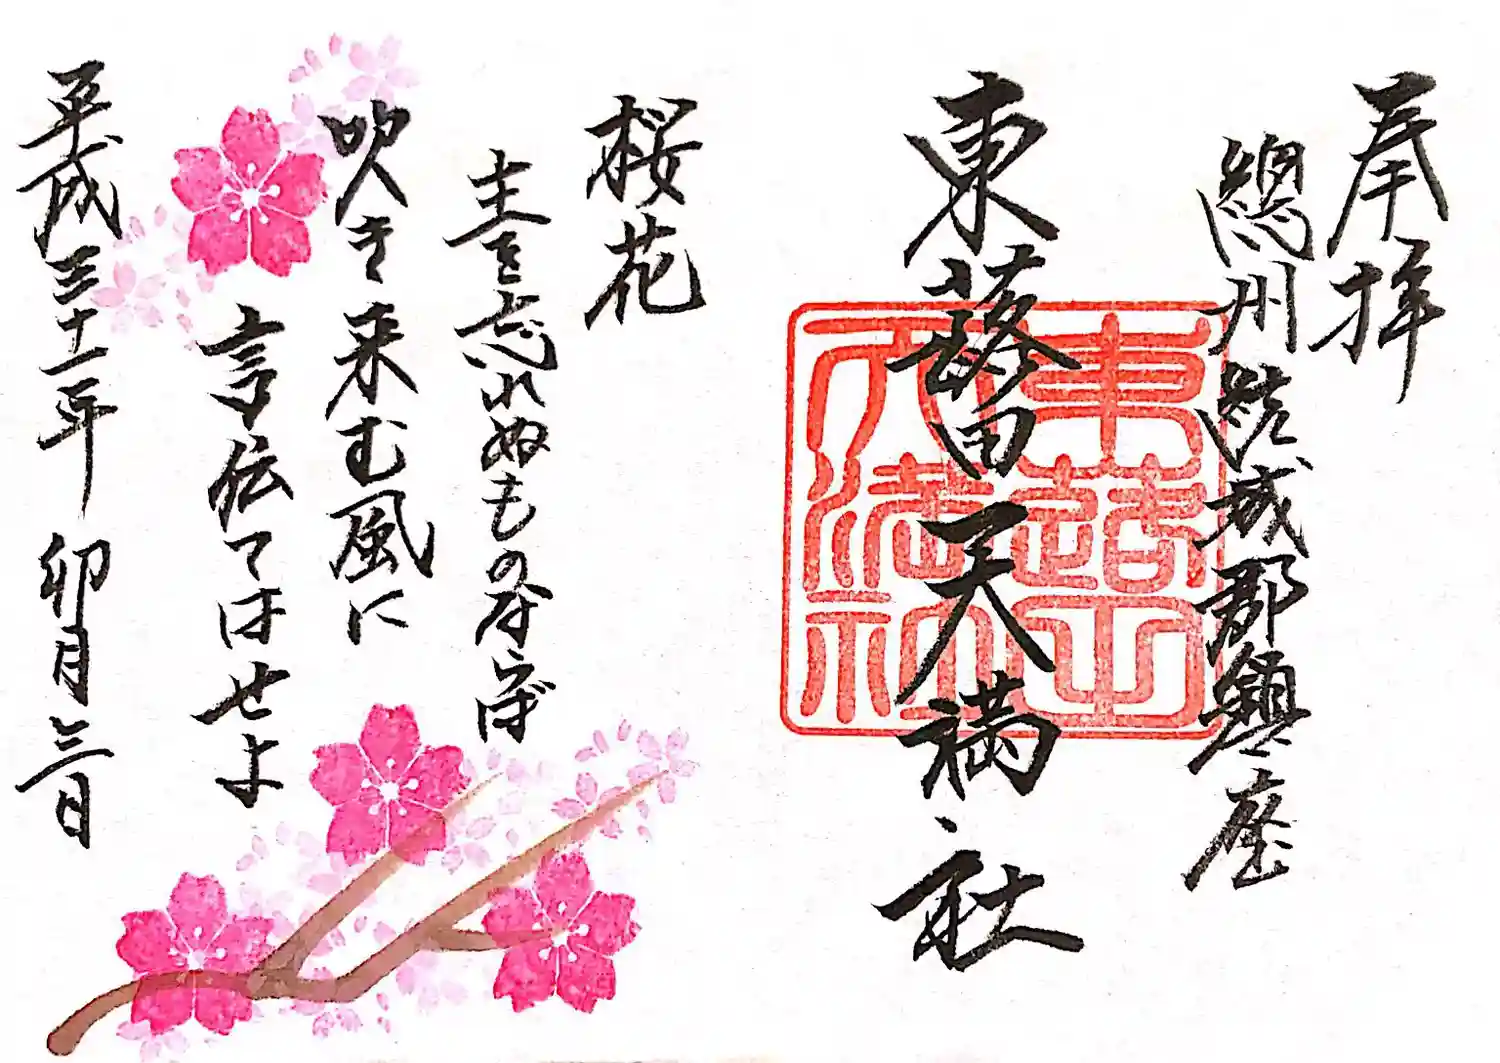 奉拝
總州結城郡鎮座
東蕗田天満社
東蕗田
天満社
桜花
主を忘れぬものならば
吹き来む風に
言伝てはせよ
平成三十一年 卯月三日